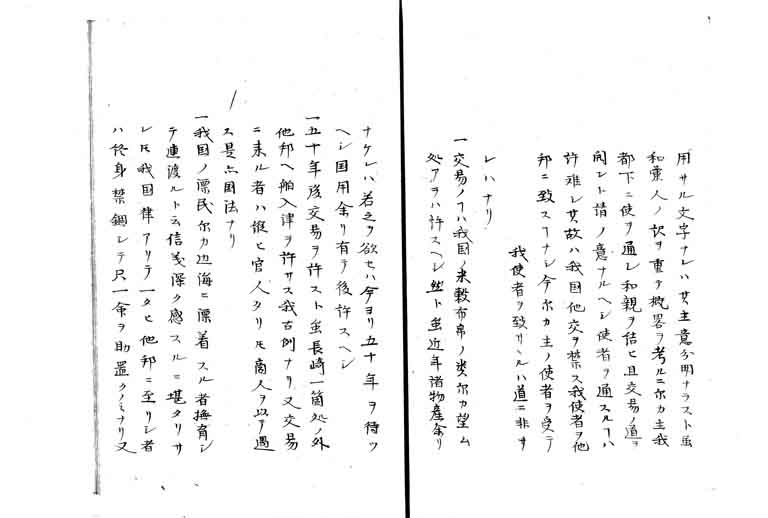 用サル文字ナレハ其主意分明ナラスト雖
和蘭人ノ訳ヲ重テ概畧ヲ考ルニ尓カ主我
都下ニ使ヲ通シ和親ヲ結ヒ且交易ノ道ヲ
開ント請ノ意ナルヘシ使者ヲ通スルヿハ
許難シ其故ハ我国他交ヲ禁ス我使者ヲ他
邦ニ致スヿナシ今尓カ主ノ使者ヲ受テ
我使者ヲ致サヽルハ道ニ非サ
レハナリ
一交易ノヿハ我国ノ米穀布帛ノ類尓カ望ム
処アラハ許スヘシ然ト雖近年諸物産余リ
ナケレハ若之ヲ欲セハ今ヨリ五十年ヲ待ツ
ヘシ国用余リ有テ後許スヘシ
一五十年後交易ヲ許スト雖長崎一箇処ノ外
他邦ヘ舶入津ヲ許サス我古例ナリ又交易
ニ来ル者ハ縦ヒ官人タリトモ商人ヲ以テ遇
ス是亦国法ナリ
一我国ノ漂民尓カ辺海ニ漂着スル者撫育シ
テ連渡ルト云信義深ク感スルニ堪タリサ
レトモ我国律アリテ一タヒ他邦ニ至リシ者
ハ終身禁錮シテ只一命ヲ助置クノミナリ又